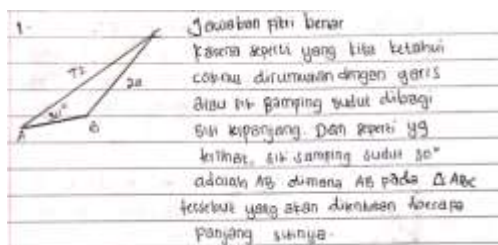 1.
Jawaban pitri benar
Karena seperti yang kita ketahui
cosinus dirumuskan dengan garis
atau sisi samping sudut dibagi
sisi terpanjang. Dan seperti yg
terlihat, sisi samping sudut 30°
adalah AB dimana AB pada Δ ABC
tersebut yang akan ditentukan berapa
panjang sisinya.
A
B
30°